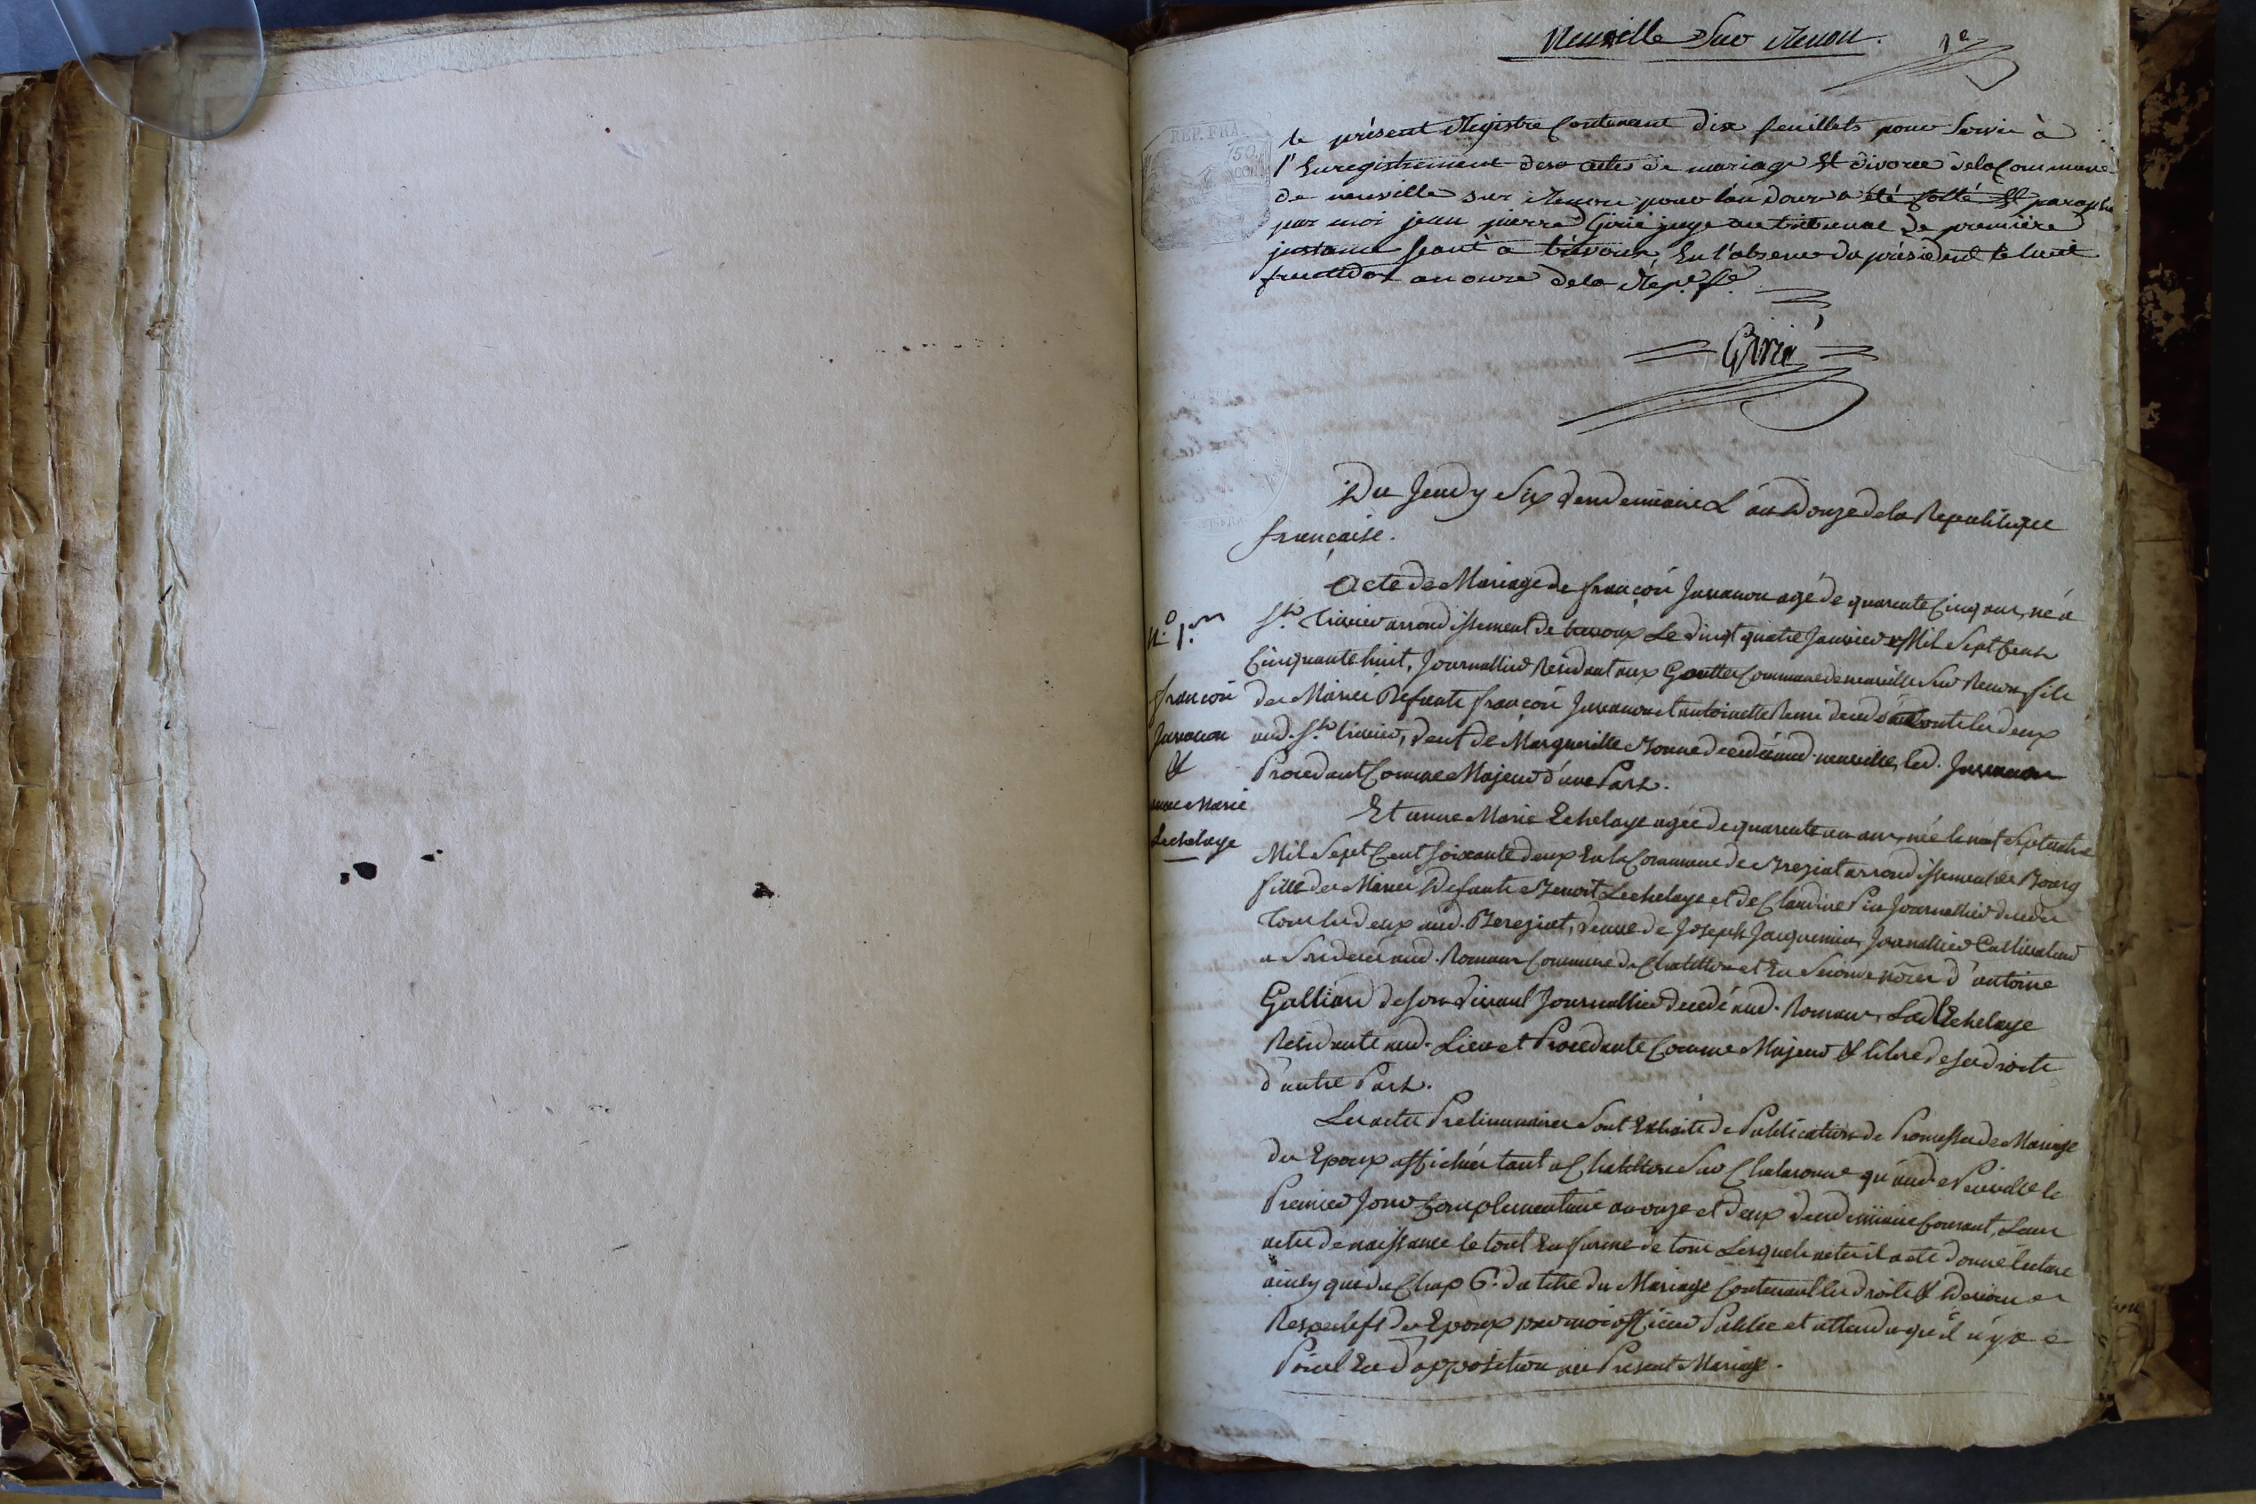 Neuville Sur Renon. 1e
REP. FRA.
le présent Registre Contenant dix feuillets pour Servir à
l'Enregistrement des actes de mariage Et divorce dela Commune
de neuville sur Renon pour l'an douze a été Cotté Et paraphé
par moi jean pierre Girié juge au tribunal de première
instance seant a trévoux, En l'absence du président le huit
fructidor an onze dela Rép.e f.e
Girié
Du Jeudy Six Vendemiaire L'an Douze dela Republique
française.
Acte de Mariage de françois Juvanon agé de quarente Cinq ans, né a
St. Trivier arrondissement de trevoux Le vingt quatre Janvier Mil Sept Cent
Cinquante huit, Journallier Residant aux Gouttes Commune de neuville Sur Renon, fils
N.o 1.er
françois
Juvanon
&
anne Marie
Lechelaye
des Mariés Defunts françois Juvanon et antoinette Remi decedés tout les deux
aud. St. Trivier, veuf de Margueritte Bonne decedée aud. neuville, led. Juvanon
Procedant Comme Majeur d'une Part.
Et anne Marie Lechelaye agée de quarente un ans, née le sept Septembre
Mil Sept Cent Soixante deux En la Commune de Bereziat arrondissement de Bourg
fille des Mariés Defunts Benoit Lechelaye et de Claudine Pin Journallier decedés
tous les deux aud. Bereziat, veuve de Joseph Jacquemin, Journallier Cultivateur
aud. Romans Commune de Chatillon et En Seconde nôces d'antoine
Galliard de son vivant Journallier decedé aud. Romans, Lad. Lechelaye
Residante aud. Lieu et Procedante Comme Majeur & libre de ses droits
d'autre Part.
Les actes Preliminaires Sont Extraits de Publications de Promesses de Mariage
des Epoux affichées tant a Chatillon Sur Chalaronne qu'aud. Neuville le
Premier Jour Complementaire an onze et deux Vendemiaire Courant, Leur
actes de naissance le tout En forme de tous Lesquels actes il a eté donné lecture
ainsy que du Chap 6. du titre du Mariage Contenant les droits & Devoirs
Respectifs des Epoux par moi officier Public et attendu qu'il n'y a
Point Eu d'opposition au Present Mariage.